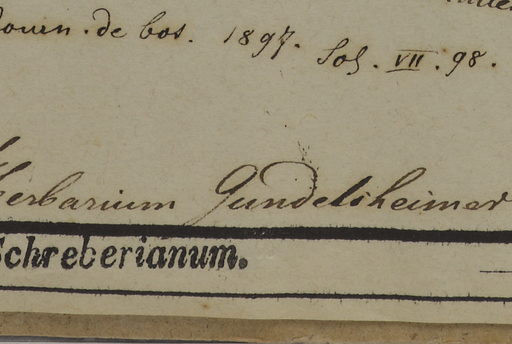 de bos. 1897. Sol. VII. 98.
Herbarium Gundelsheimer
Schreberianum.